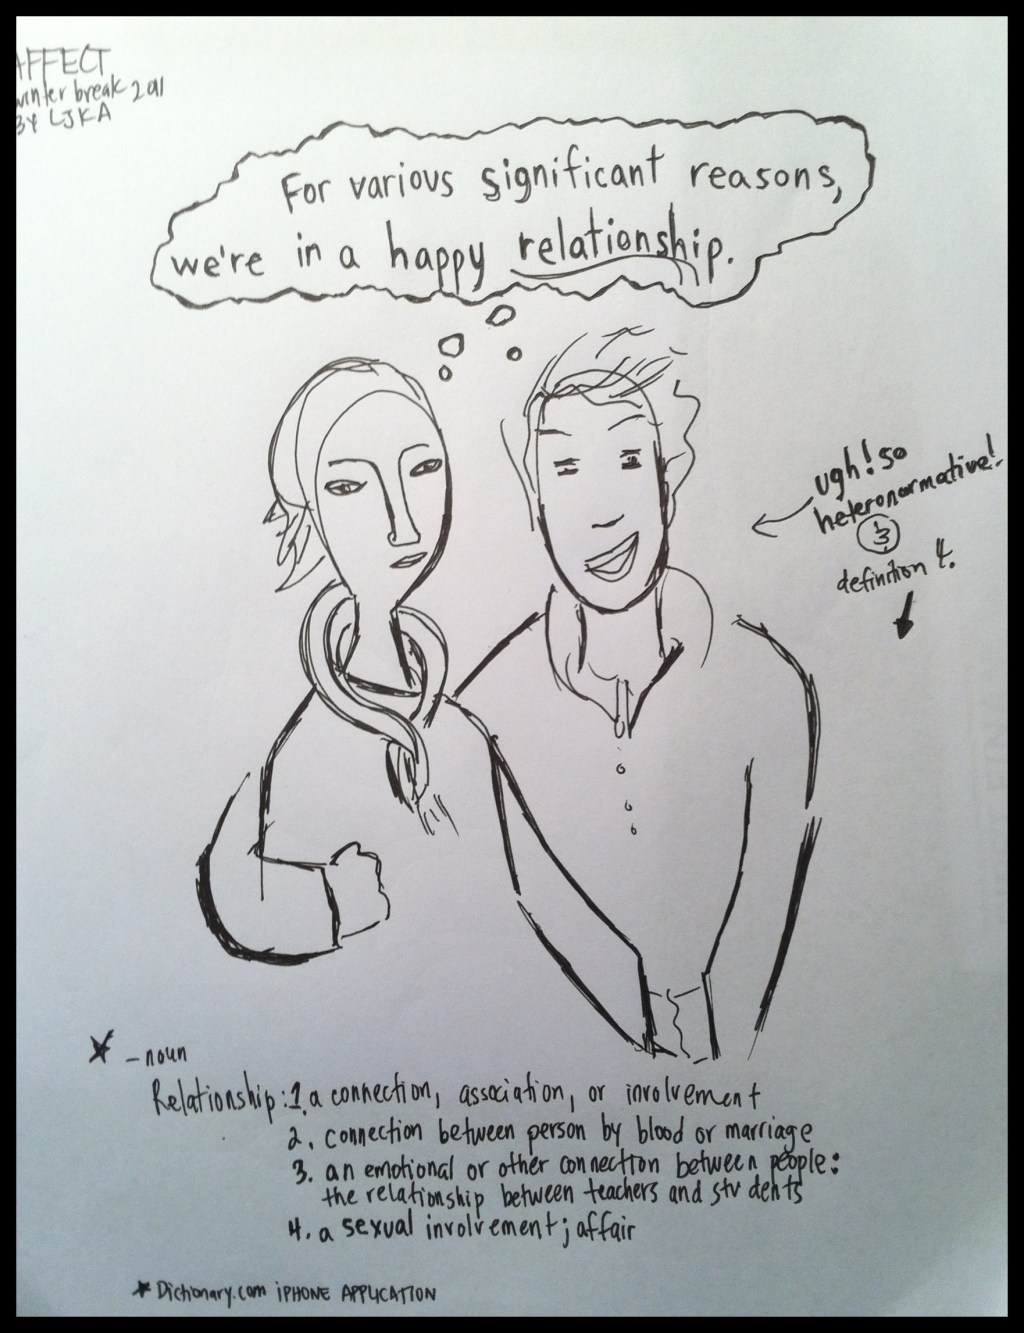 AFFECT
winter break 2011
BY LJKA
For various significant reasons,
we're in a happy relationship.
ugh! so
heteronormative!
3
definition 4.
- noun
Relationship: 1. a connection, association, or involvement
2. connection between person by blood or marriage
3. an emotional or other connection between people:
the relationship between teachers and students
4. a sexual involvement; affair
* Dictionary.com iPHONE APPLICATION